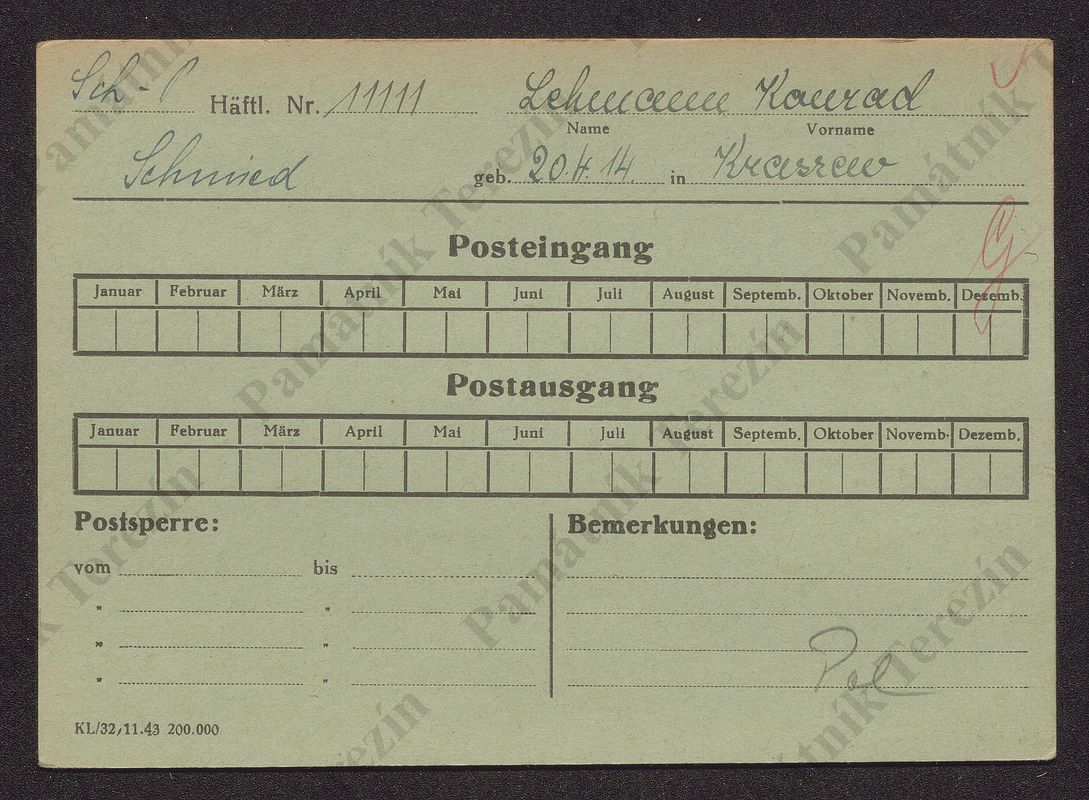 Sch - P Häftl. Nr. 11111 Lehmann Konrad
Name Vorname
Schmied geb. 20.4.14. in Krassau
Posteingang
Januar Februar März April Mai Juni Juli August Septemb. Oktober Novemb. Dezemb.
Postausgang
Januar Februar März April Mai Juni Juli August Septemb. Oktober Novemb. Dezemb.
Postsperre: Bemerkungen:
vom bis
" "
" "
" "
Pol
KL/32,11.43 200.000
Památník Terezín